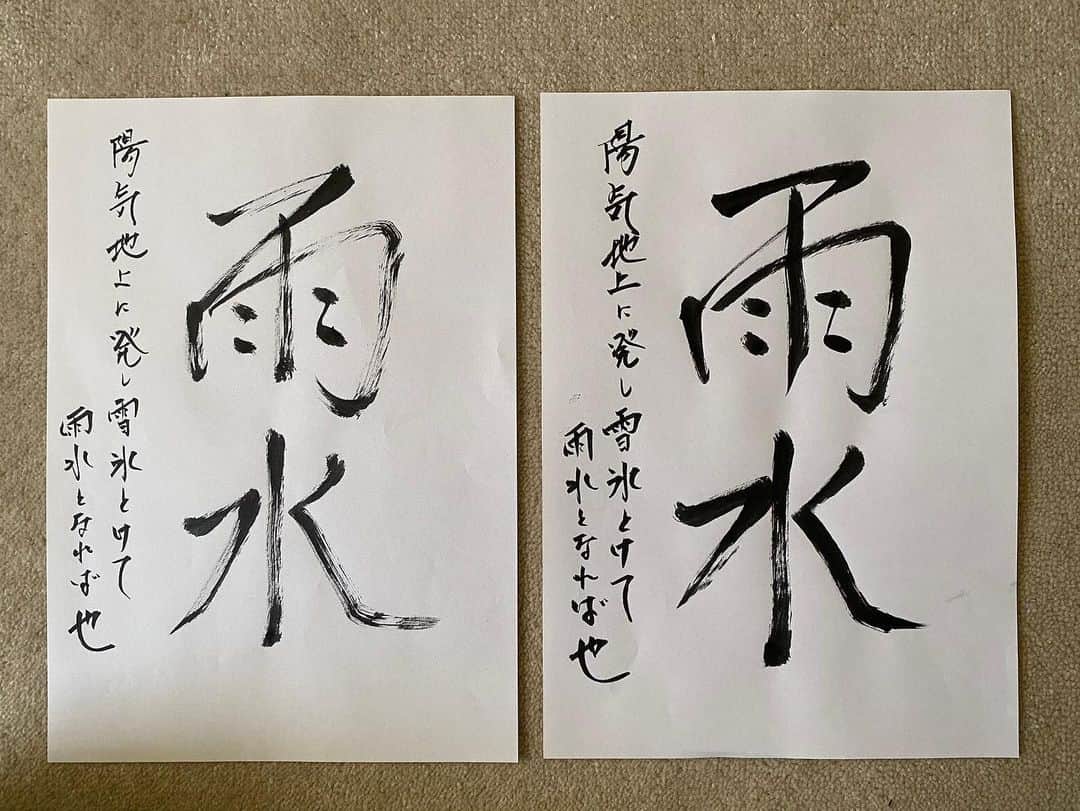 雨水
陽気地上に発し雪氷とけて
雨水となれば也
雨水
陽気地上に発し雪氷とけて
雨水となれば也